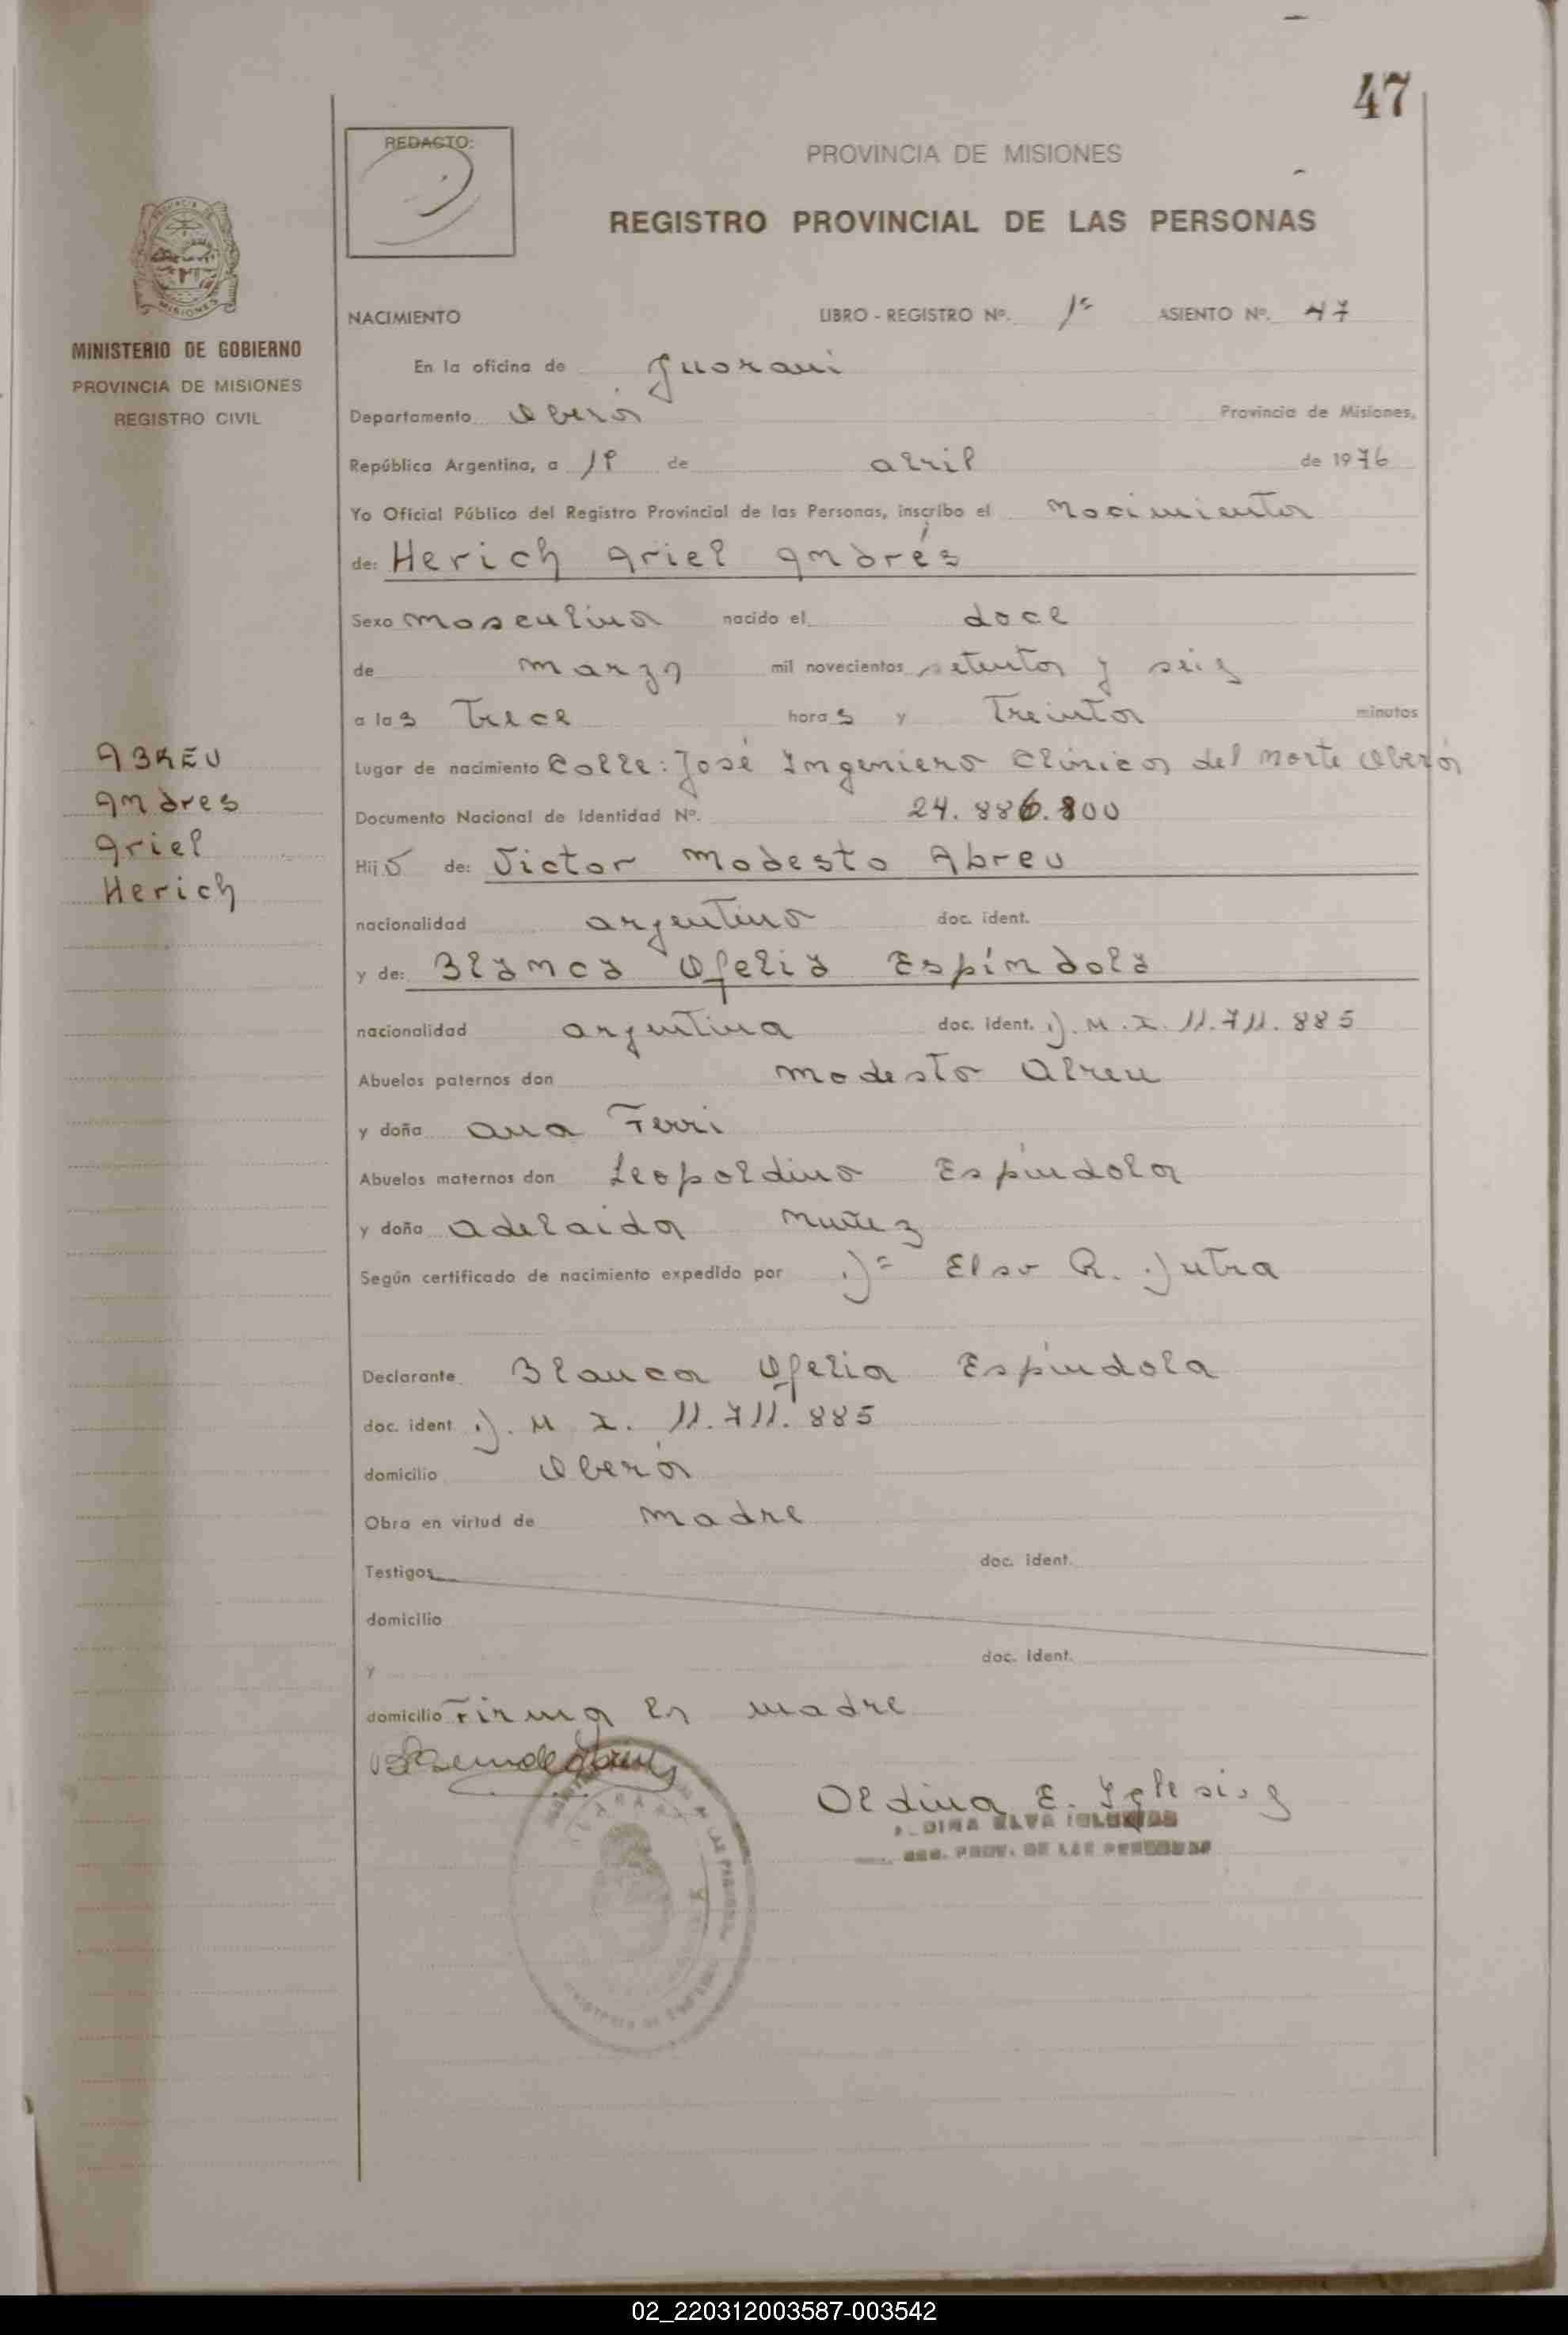 47
REDACTO:
PROVINCIA DE MISIONES
REGISTRO PROVINCIAL DE LAS PERSONAS
MINISTERIO DE GOBIERNO
PROVINCIA DE MISIONES
REGISTRO CIVIL
NACIMIENTO LIBRO - REGISTRO Nº. 1º ASIENTO Nº. 47
En la oficina de Guarani
Departamento Oberá Provincia de Misiones,
República Argentina, a 1º de abril de 1976
Yo Oficial Público del Registro Provincial de las Personas, inscribo el Nacimiento
de: Herich Ariel Andrés
Sexo masculino nacido el doce
de marzo mil novecientos setenta y seis
a las trece horas y treinta minutos
Lugar de nacimiento Calle: José Ingeniero Clinica del Norte Oberá
Documento Nacional de Identidad Nº. 24.886.800
Hijo de: Victor Modesto Abreu
nacionalidad argentino doc. ident.
y de: Blanca Ofelia Espíndola
nacionalidad argentina doc. ident. D.N.I. 11.711.885
Abuelos paternos don Modesto Abreu
y doña Ana Ferri
Abuelos maternos don Leopoldino Espíndola
y doña Adelaida Nuñez
Según certificado de nacimiento expedido por Dª Elsa R. Dutra
Declarante Blanca Ofelia Espíndola
doc. ident. D.N.I. 11.711.885
domicilio Oberá
Obra en virtud de madre
Testigos doc. ident.
domicilio
y doc. ident.
domicilio Firma la madre
Oldina E. Iglesias
REG. PROV. DE LAS PERSONAS
ABREU
Andres
Ariel
Herich
02_220312003587-003542